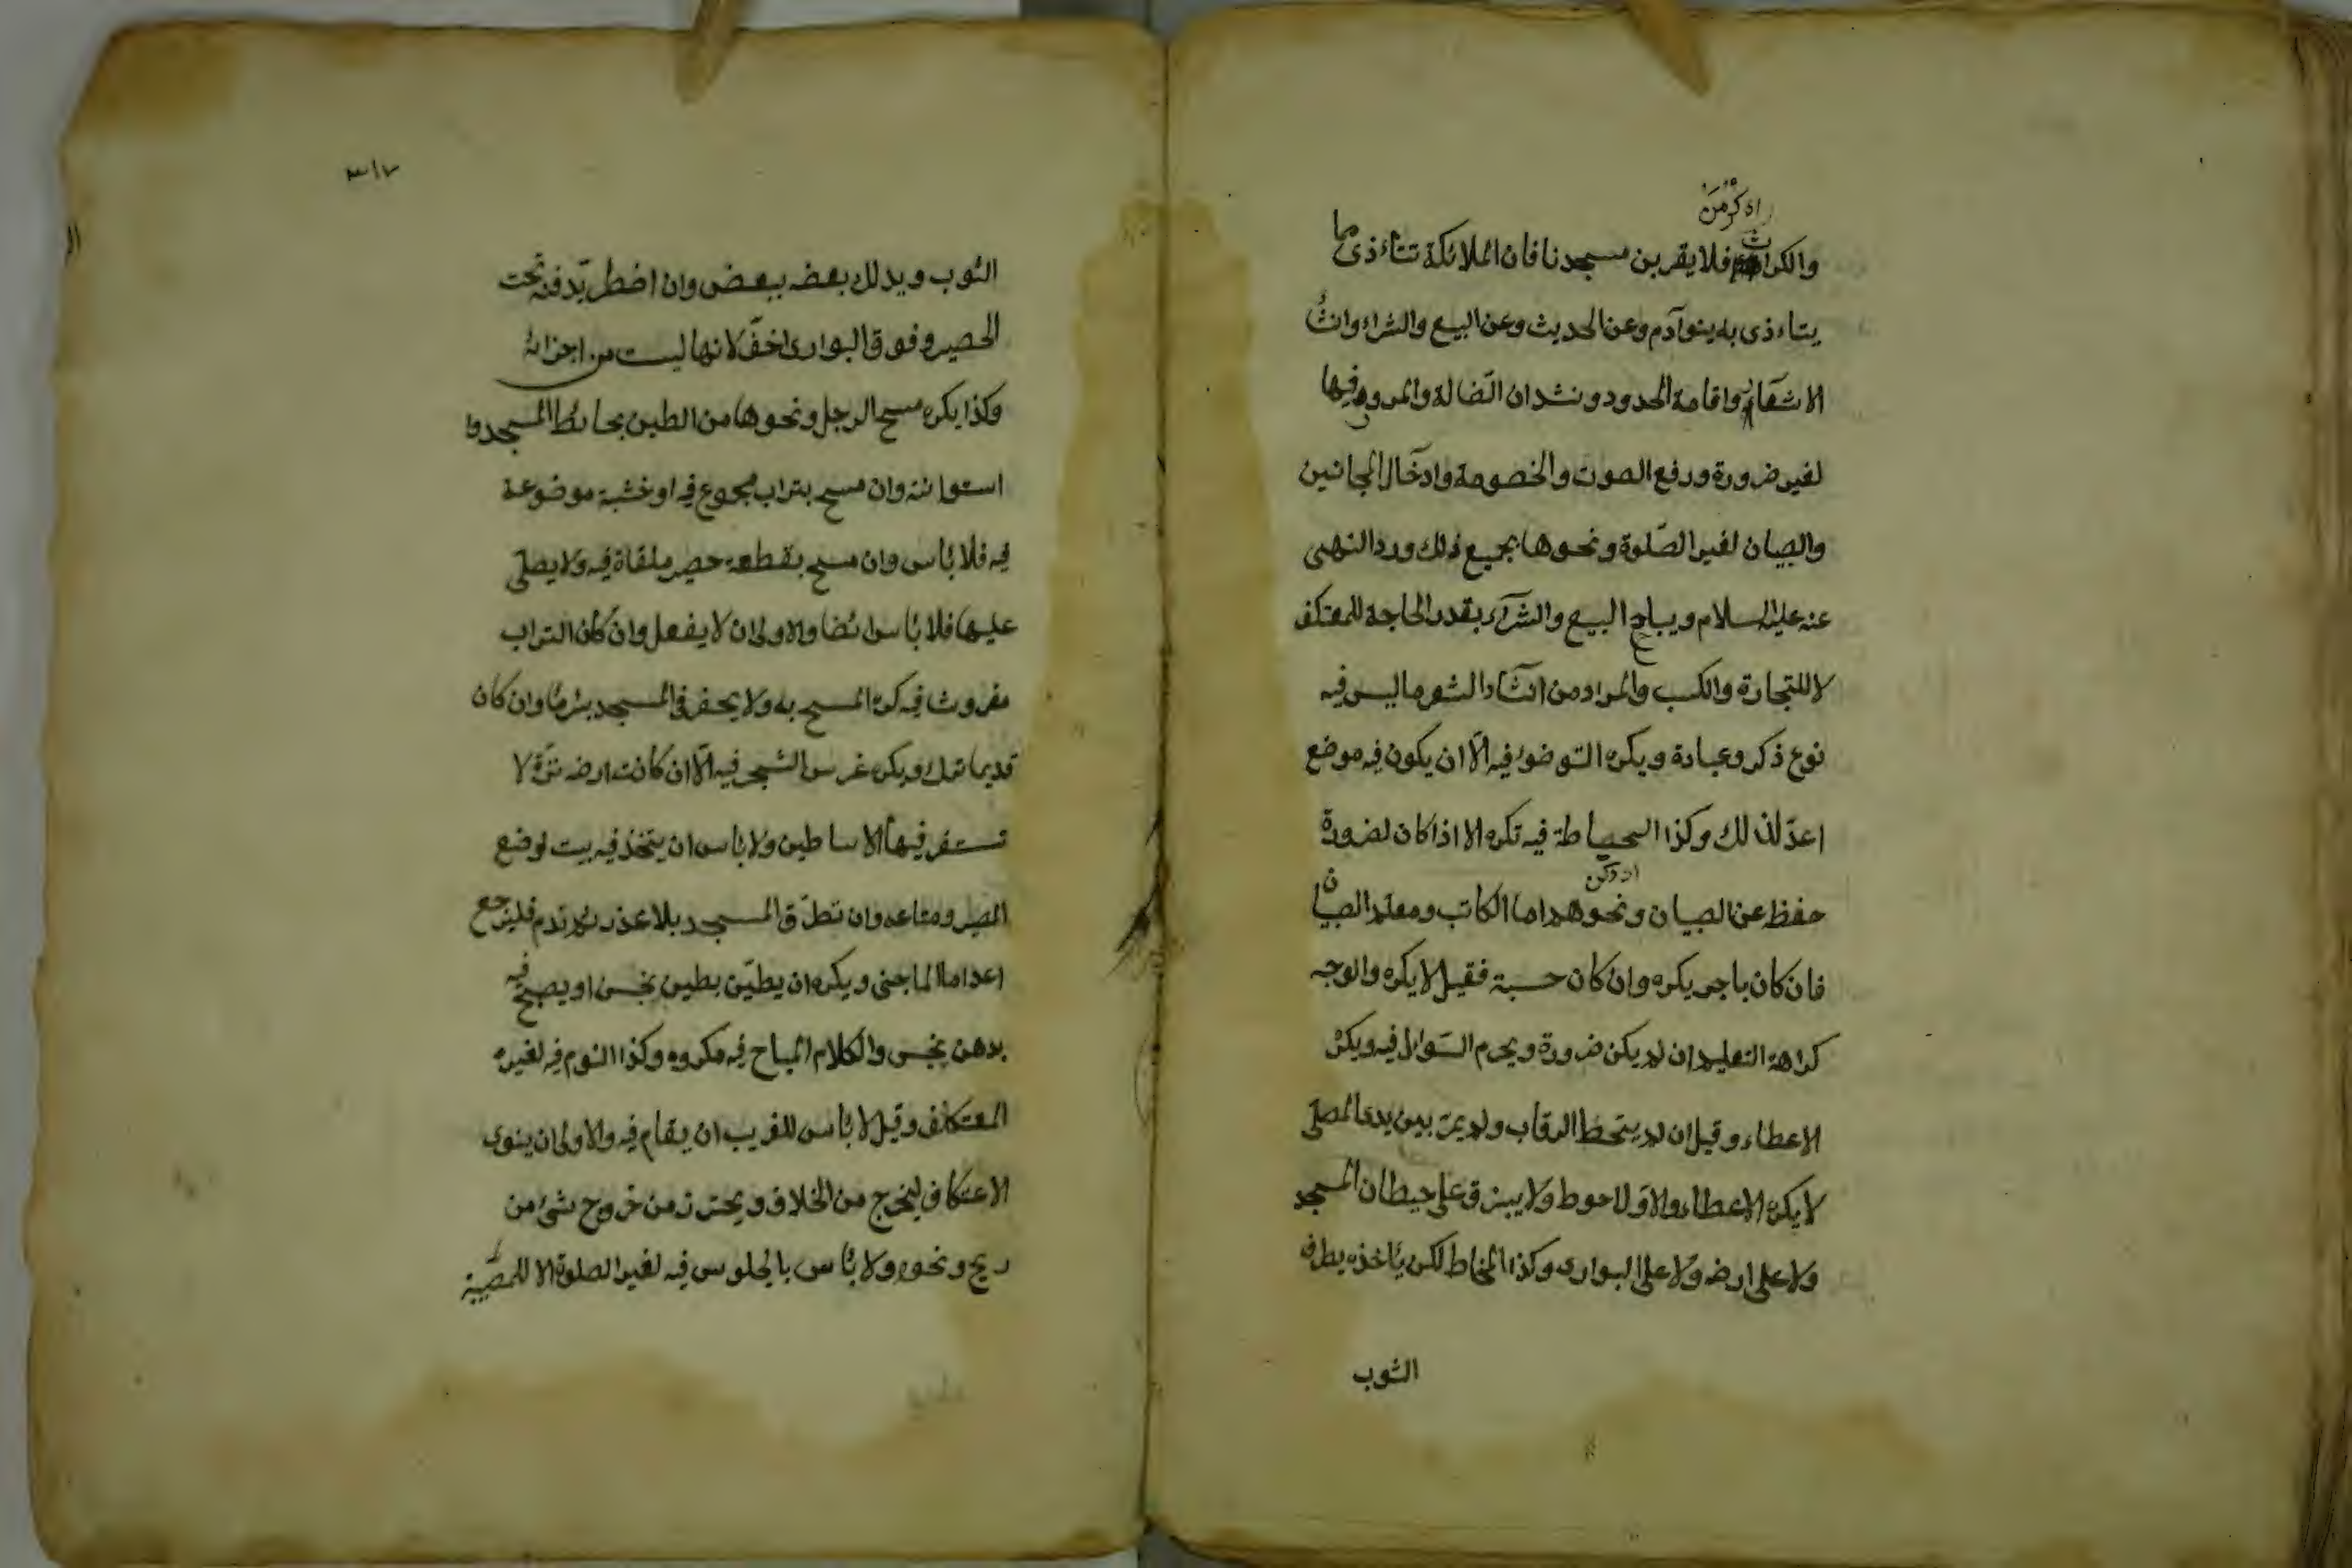 راه كرمن
والكراث فلا يقربن مسجدنا فان الملائكة تتأذى مما
يتاءذى به بنوآدم وعن الحديث وعن البيع والشراء وانشا
الاشعار واقامة الحدود ونشدان الضالة والمرور فيها
لغير ضرورة ورفع الصوت والخصومة وادخال المجانين
والصبيان لغير الصّلوة ونحوها بجميع ذلك ورد النهى
عنه عليه السلام ويباح البيع والشرآء بقدر الحاجة للمعتكف
لا للتجارة والكسب والمراد من انشاد الشعر ما ليس فيه
نوع ذكر وعبادة ويكره التوضوء فيه الّا ان يكون فيه موضع
اعدّ لذلك وكذا الخياطة فيه تكره الا اذا كان لضرورة
حفظ عن الصبيان ونحوهم اما الكاتب ومعلم الصبيان
فان كان باجر يكره وان كان حسبة فقيل لا يكره والوجه
كراهة التعليم ان لم يكن ضرورة ويحرم السّوال فيه ويكره
الاعطاء وقيل ان لم يتخط الرقاب ولم يمرّ بين يدى المصلى
لا يكره الاعطاء والاوّل احوط ولا يبزق على حيطان المسجد
ولا على ارضه ولا على البوارى وكذا المخاط لكن يأخذه بطرف
الثوب
٣١٧
الثوب ويدلك بعضه ببعض وان اضطر يدفنه تحت
الحصير وفوق البوارى اخفّ لانها ليست من اجزائه
وكذا يكره مسح الرجل ونحوها من الطين بحائط المسجد وا
استوانته وان مسح بتراب مجموع فيه او خشبة موضوعة
فيه فلا بأس وان مسح بقطعة حصير ملقاة فيه ولا يصلى
عليها فلا بأس ايضا والاولى ان لا يفعل وان كان التراب
مفروشا فيه كره المسح به ولا يحفر فى المسجد بئر ماء وان كان
قديما ترك ويكره غرس الشجر فيه الّا ان كانت ارضه نزّة لا
تستقر فيها الاساطين ولا بأس ان يتخذ فيه بيت لوضع
الحصير ومتاعه وان تطرّق المسجد بلا عذر ثم ندم فليرجع
اعداما لما جنى ويكره ان يطيّن بطين نجس او يصبح فيه
بدهن نجس والكلام المباح فيه مكروه وكذا النوم فيه لغير
المعتكف وقيل لا بأس للغريب ان ينام فيه والاولى ان ينوى
الاعتكاف ليخرج من الخلاف ويحترز من خروج شئ من
ريح ونحوه ولا بأس بالجلوس فيه لغير الصلوة الا للمصيبة